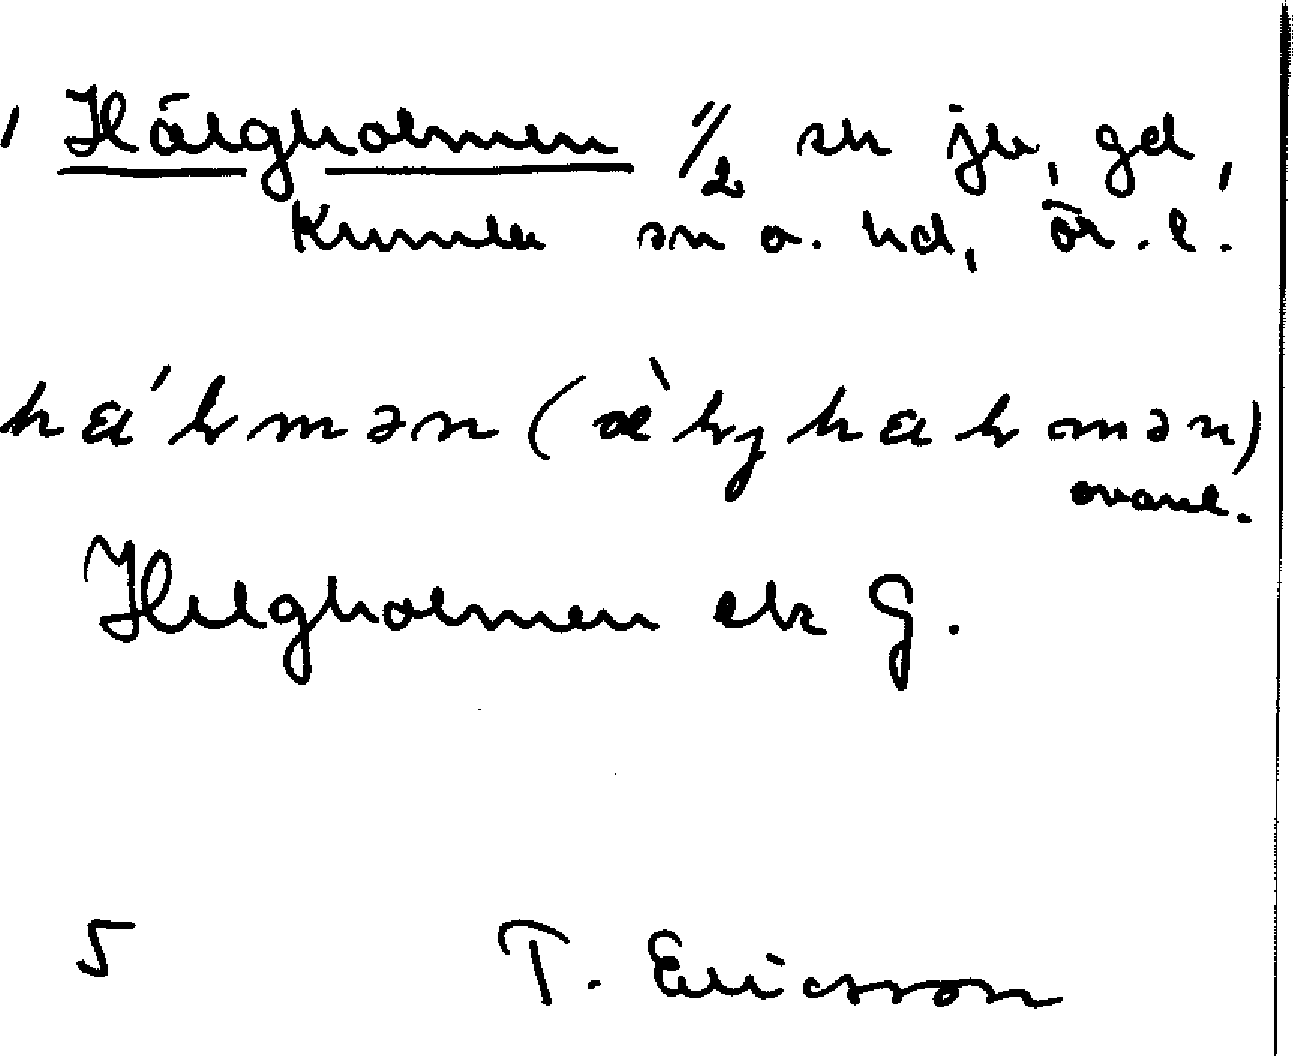 Hälgholmen 1/2 sk je, gd,
Kumla sn o. hd, ör. l.
ha´lmən (æ`lghalmən)
ovanl.
Helgholmen ek G.
5 T. Ericsson